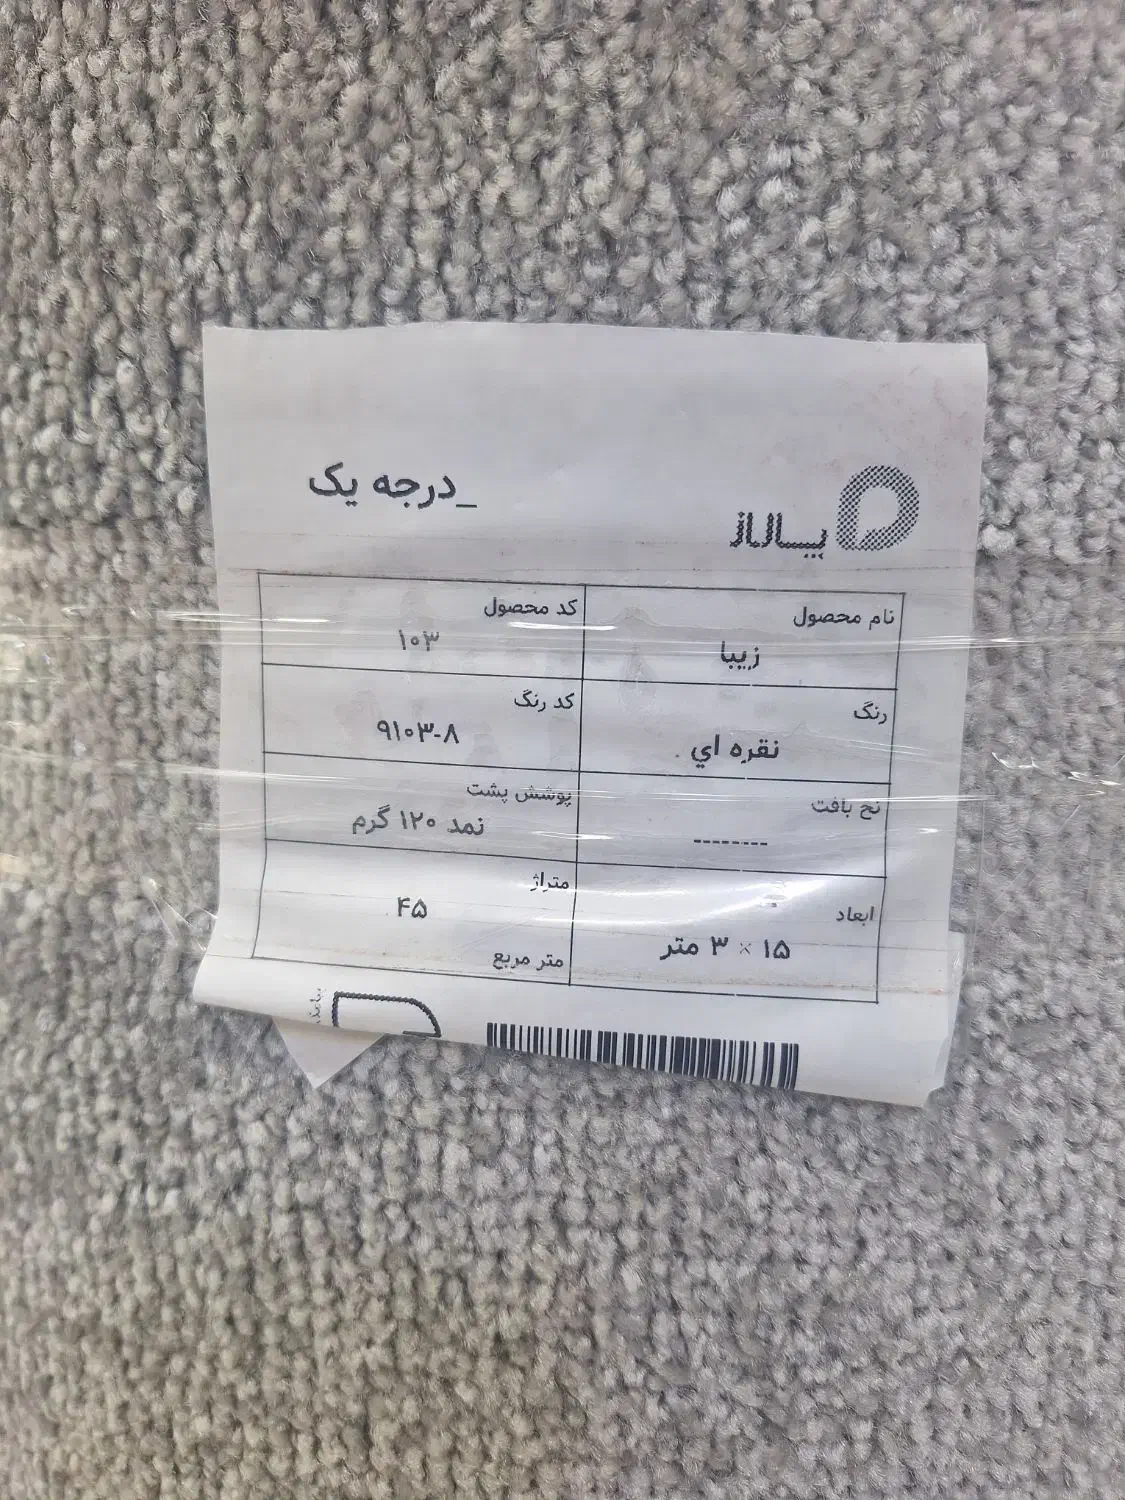 پالاز
_درجه یک
نام محصول
زیبا
کد محصول
۱۰۳
رنگ
نقره اي
کد رنگ
۹۱۰۳-۸
نخ بافت
--------
پوشش پشت
نمد ۱۲۰ گرم
ابعاد
۱۵ × ۳ متر
متراژ
۴۵
متر مربع